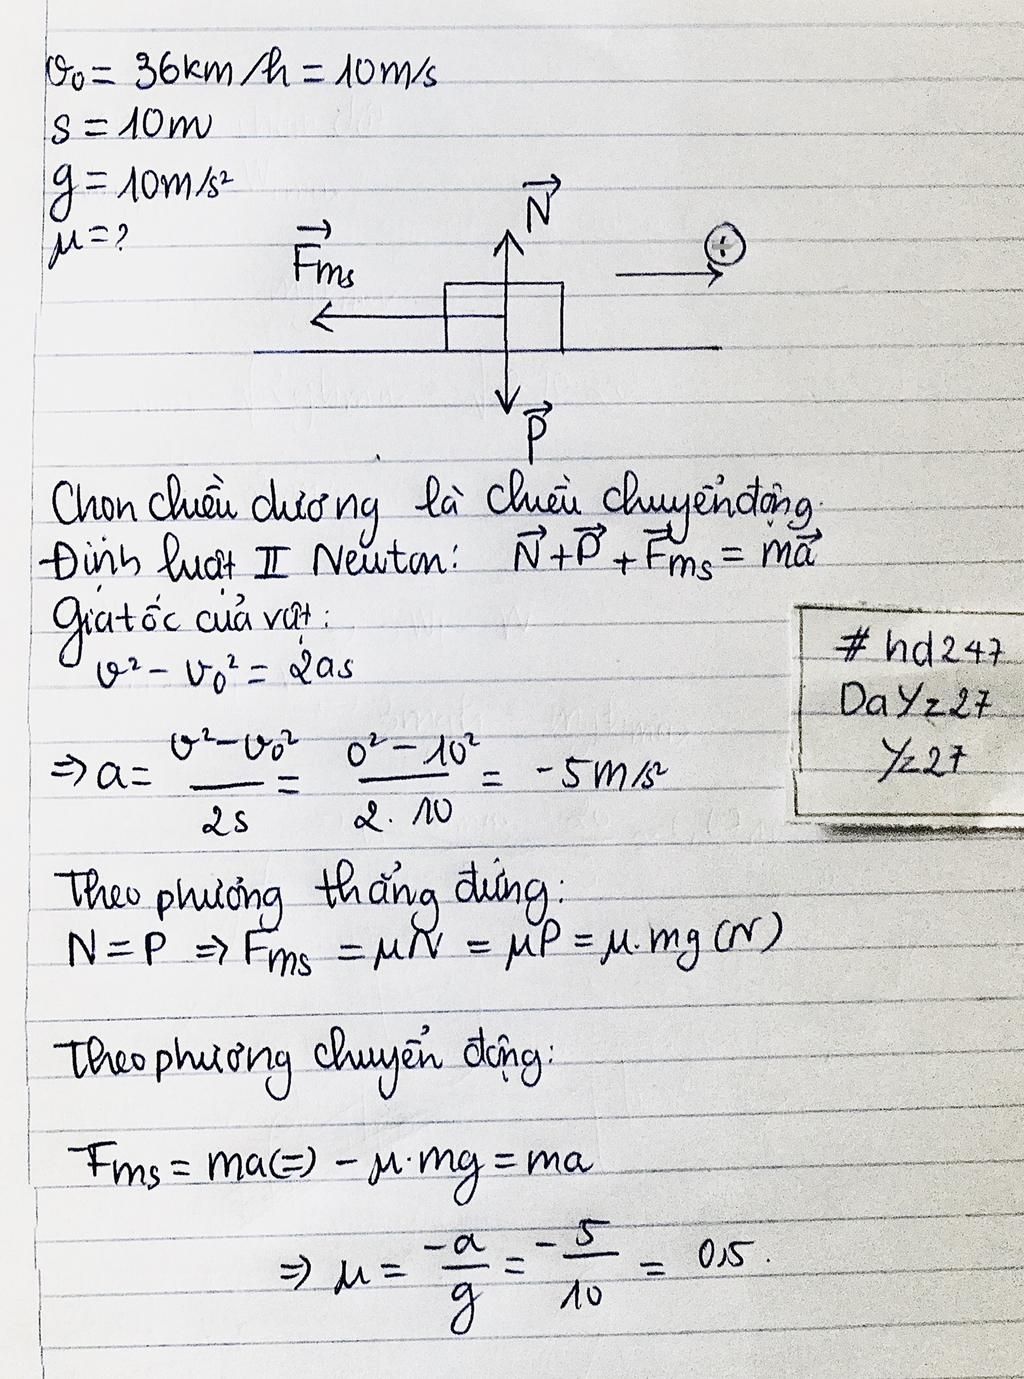 v₀ = 36km/h = 10m/s
s = 10m
g = 10m/s²
μ = ?
N⃗
F⃗ms
+
P⃗
Chọn chiều dương là chiều chuyển động.
Định luật II Newton: N⃗ + P⃗ + F⃗ms = ma⃗
Gia tốc của vật:
v² - v₀² = 2as
# hd247
DaYz27
Yz27
⇒ a = (v² - v₀²)/2s = (0² - 10²)/(2. 10) = -5m/s²
Theo phương thẳng đứng:
N = P ⇒ Fms = μN = μP = μ.mg (N)
Theo phương chuyển động:
Fms = ma (=) - μ.mg = ma
⇒ μ = -a/g = -5/10 = 0,5.